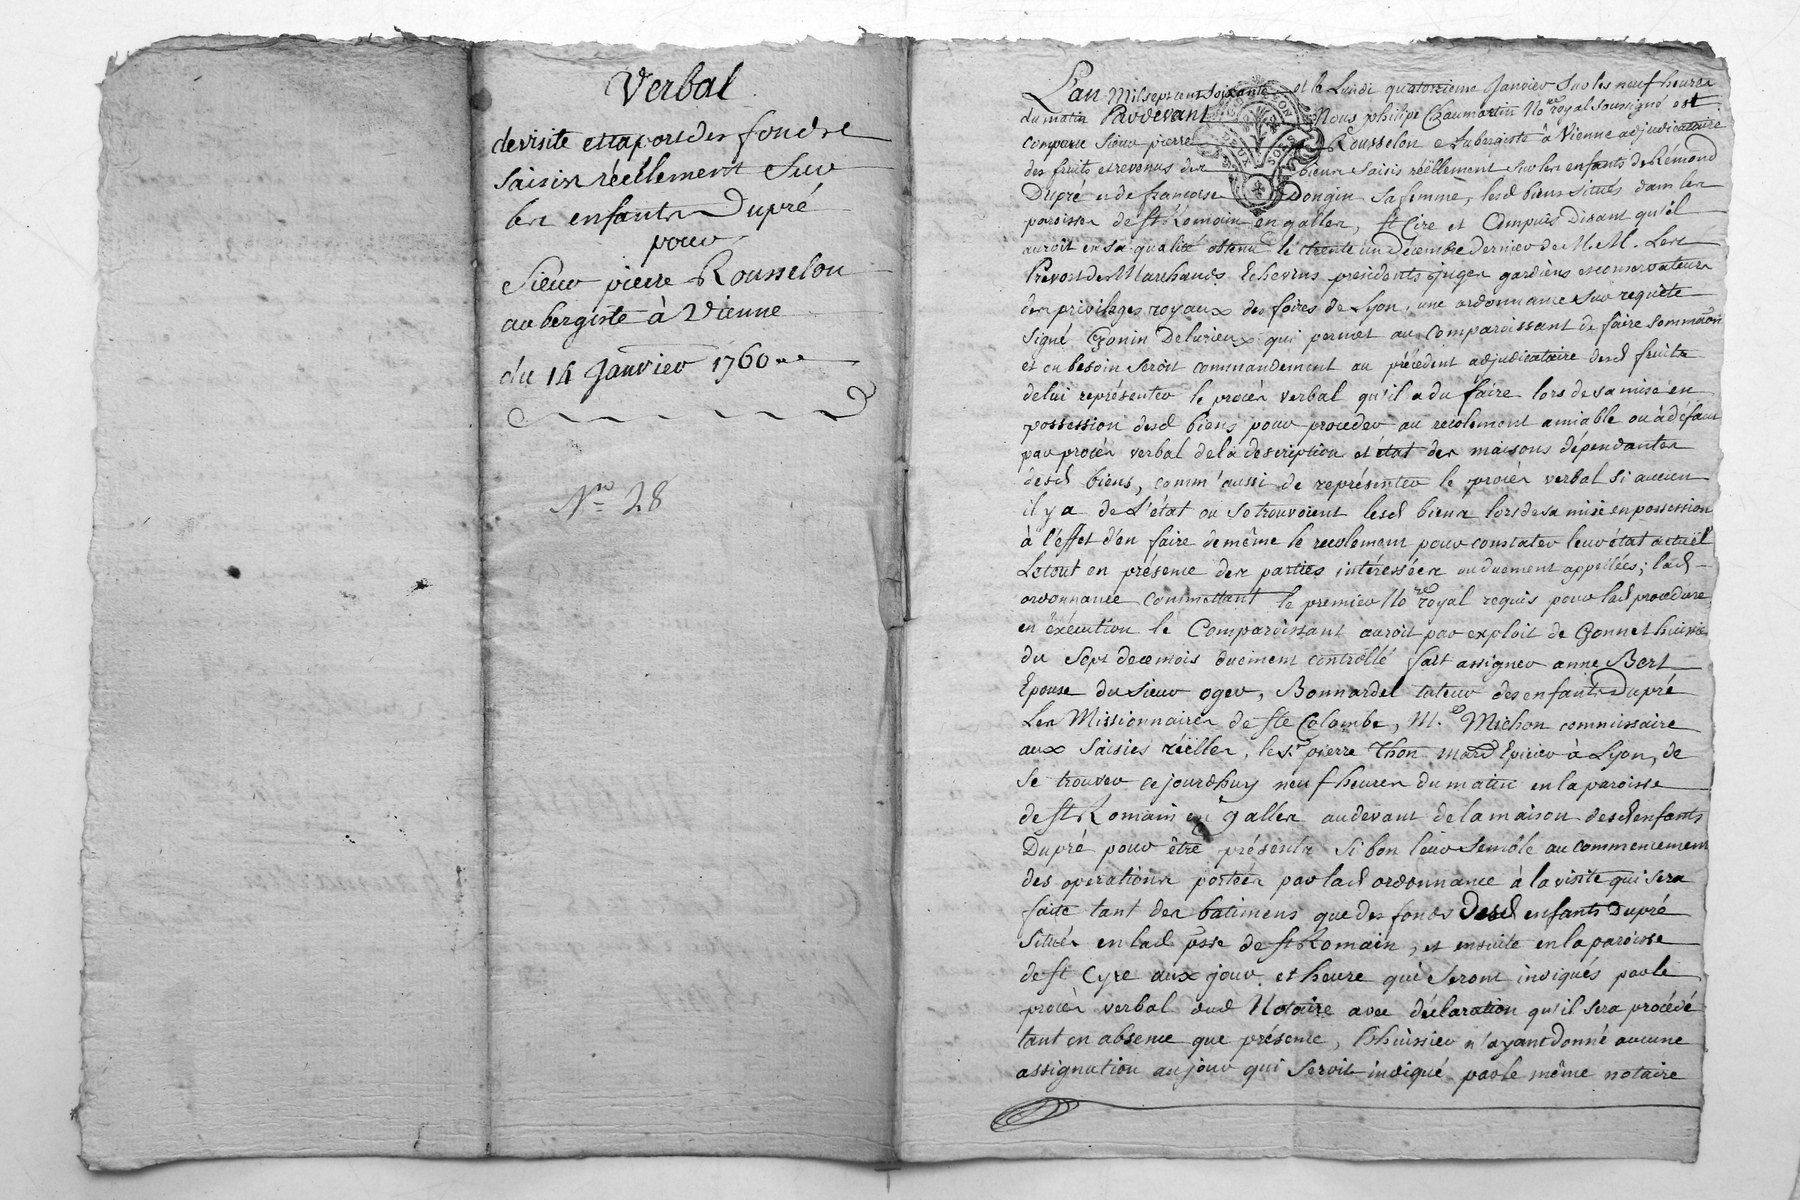 Verbal
de visite et raport des fondre
saisis réellement sur
les enfants Dupré
pour
Sieur pierre Rousselon
aubergiste à Vienne
du 14 Janvier 1760
Nro 28
L'an Mil sept cent soixante et le Lundi quatorzieme Janvier sur les neuf heures
du matin Pardevant Nous philipe Chaumartin No.re royal soussigné est
comparu Sieur pierre Rousselon Aubergiste à Vienne adjudicataire
des fruits et revenus des biens saisis réellement sur les enfants de Rémond
Dupré et de françoise Dongin sa femme, lesd biens situés dans les
paroisses de St Romain en galles, St Cire et Ampuis Disant qu'il
auroit en sa qualité obtenu le trente un Décembre dernier de M.M. Les
Prévost des Marchands Echevins présidents juges gardiens conservateurs
des privileges royaux des foires de Lyon, une ordonnance sur requête
signé Gonin Delurieux qui permet au Comparoissant de faire sommaon
et en besoin seroit commandement au précédent adjudicataire desd fruits
de lui représenter le procès verbal qu'il a du faire lors de sa mise en
possession desd biens pour proceder au recolement amiable ou à défaut
par procès verbal de la description et état des maisons dépendantes
desd biens, comm'aussi de représenter le procès verbal si aucun
il y a de L'état ou se trouvoient lesd biens lors de sa mise en possession
à l'effet d'en faire de même le recolement pour constater leur état actuel
Le tout en présence des parties intéressées ou duement appellées; lad
ordonnance commettant le premier No.re royal requis pour lad procédure
en éxécution le Comparoissant auroit par exploit de Gonnet huissier
du Sept de ce mois duement controllé fait assigner anne Bert
Epouse du sieur oger, Bonnardel tuteur des enfants Dupré
Les Missionnaires de Ste Colombe, M.e Michon commissaire
aux saisies réelles, le s.r pierre Thon mard Epicier à Lyon, de
se trouver ce jourdhuy neuf heures du matin en la paroisse
de St Romain en galles audevant de la maison desd enfants
Dupré pour être présents si bon leur semble au commencement
des opérations portées par lad ordonnance à la visite qui sera
faite tant des batimens que des fonds desd enfants Dupré
situés en lad psse de St Romain, et ensuite en la paroisse
de St Cyre aux jour et heure qui seront indiqués par le
procès verbal dud Notaire avec déclaration qu'il sera procédé
tant en absence que présence, l'huissier n'ayant donné aucune
assignation au jour qui seroit indiqué par le même notaire